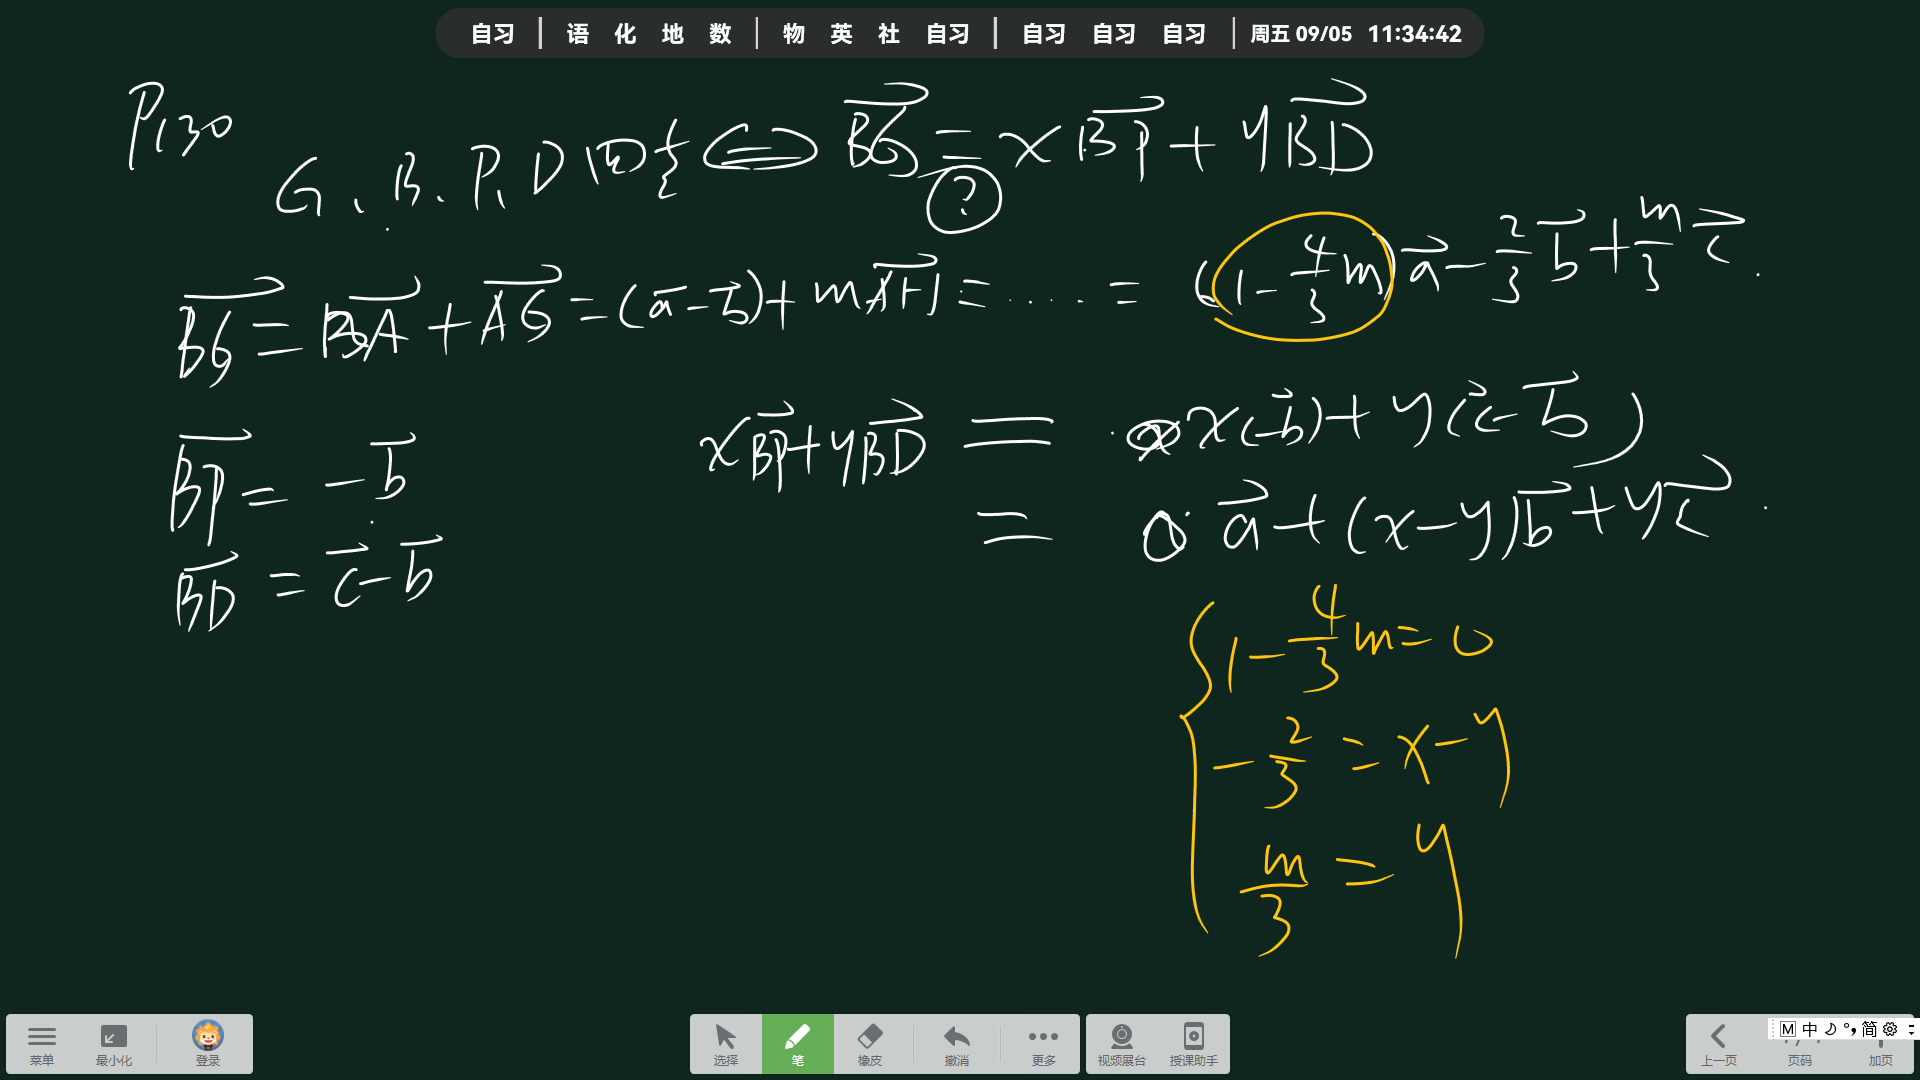 自习 | 语 化 地 数 | 物 英 社 自习 | 自习 自习 自习 | 周五 09/05 11:34:42
P130
G、B、P、D四共 ⟺ \vec{BG} = x\vec{BP} + y\vec{BD}
?
\vec{BG} = \vec{BA} + \vec{AG} = (\vec{a} - \vec{b}) + m\vec{AH} = ...... = (1 - \frac{4}{3}m)\vec{a} - \frac{2}{3}\vec{b} + \frac{m}{3}\vec{c}
x\vec{BP} + y\vec{BD} = x(-\vec{b}) + y(\vec{c} - \vec{b})
\vec{BP} = -\vec{b}
= 0·\vec{a} + (x-y)\vec{b} + y\vec{c}
\vec{BD} = \vec{c} - \vec{b}
1 - \frac{4}{3}m = 0
-\frac{2}{3} = x - y
\frac{m}{3} = y
菜单 最小化 登录 选择 笔 橡皮 撤消 更多 视频展台 授课助手 上一页 页码 加页
M 中 简